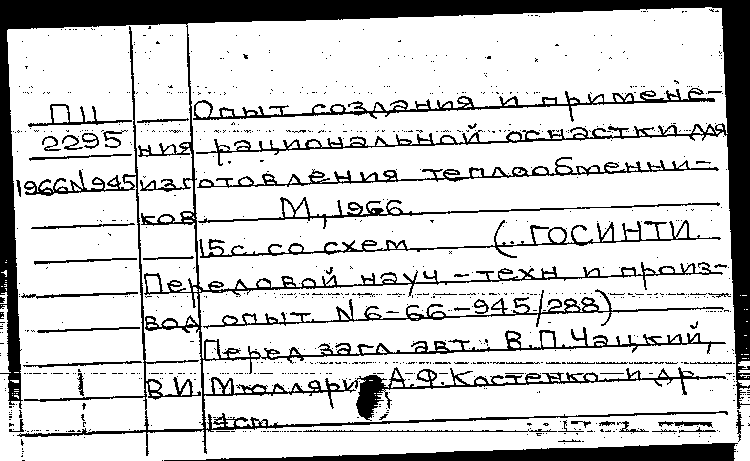 ПII Опыт создания и примене-
2295 ния рациональной оснастки для
1966N945 изготовления теплообменни-
ков. М, 1966.
15 с. со схем. (...ГОСИНТИ.
Передовой науч.-техн. и произ-
вод. опыт. N 6-66-945/288)
Перед загл. авт.: В.П.Чацкий,
В.И. Мюлляри, А.Ф.Костенко и др.